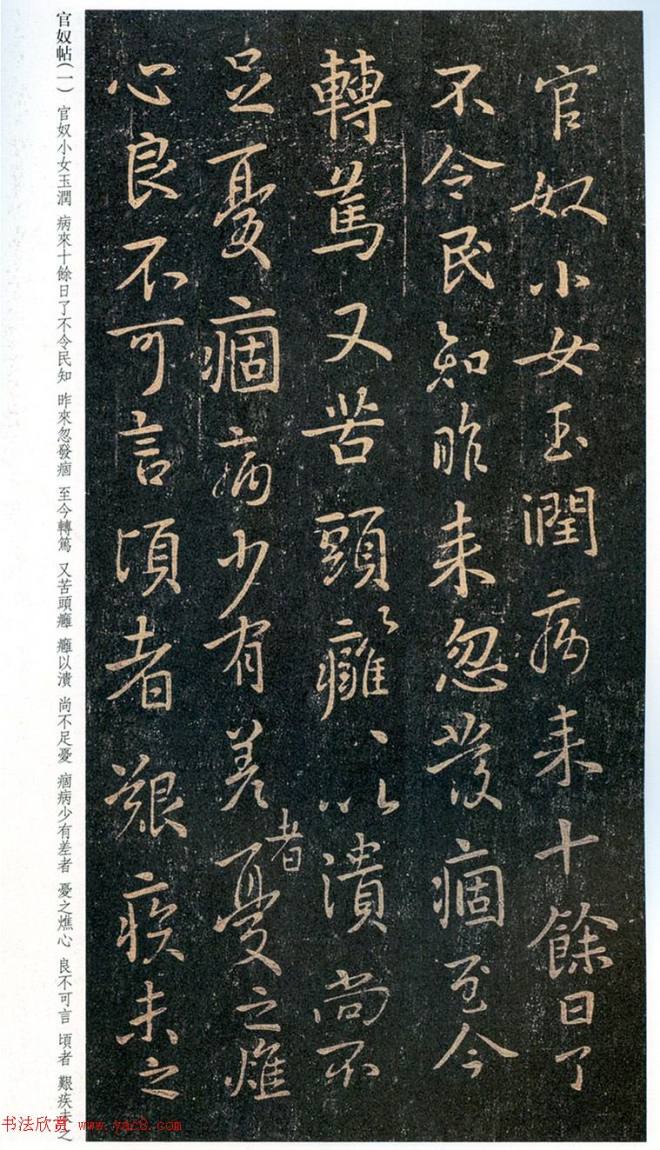 官奴小女玉潤病来十餘日了
不令民知昨来忽發痼至今
轉篤又苦頭癰〻以潰尚不
足憂痼病少有差者憂之燋
心良不可言頃者艱疾未之
官奴帖(一) 官奴小女玉潤 病來十餘日了不令民知 昨來忽發痼 至今轉篤 又苦頭癰 癰以潰 尚不足憂 痼病少有差者 憂之燋心 良不可言 頃者 艱疾未之
书法欣赏 www.yac8.com